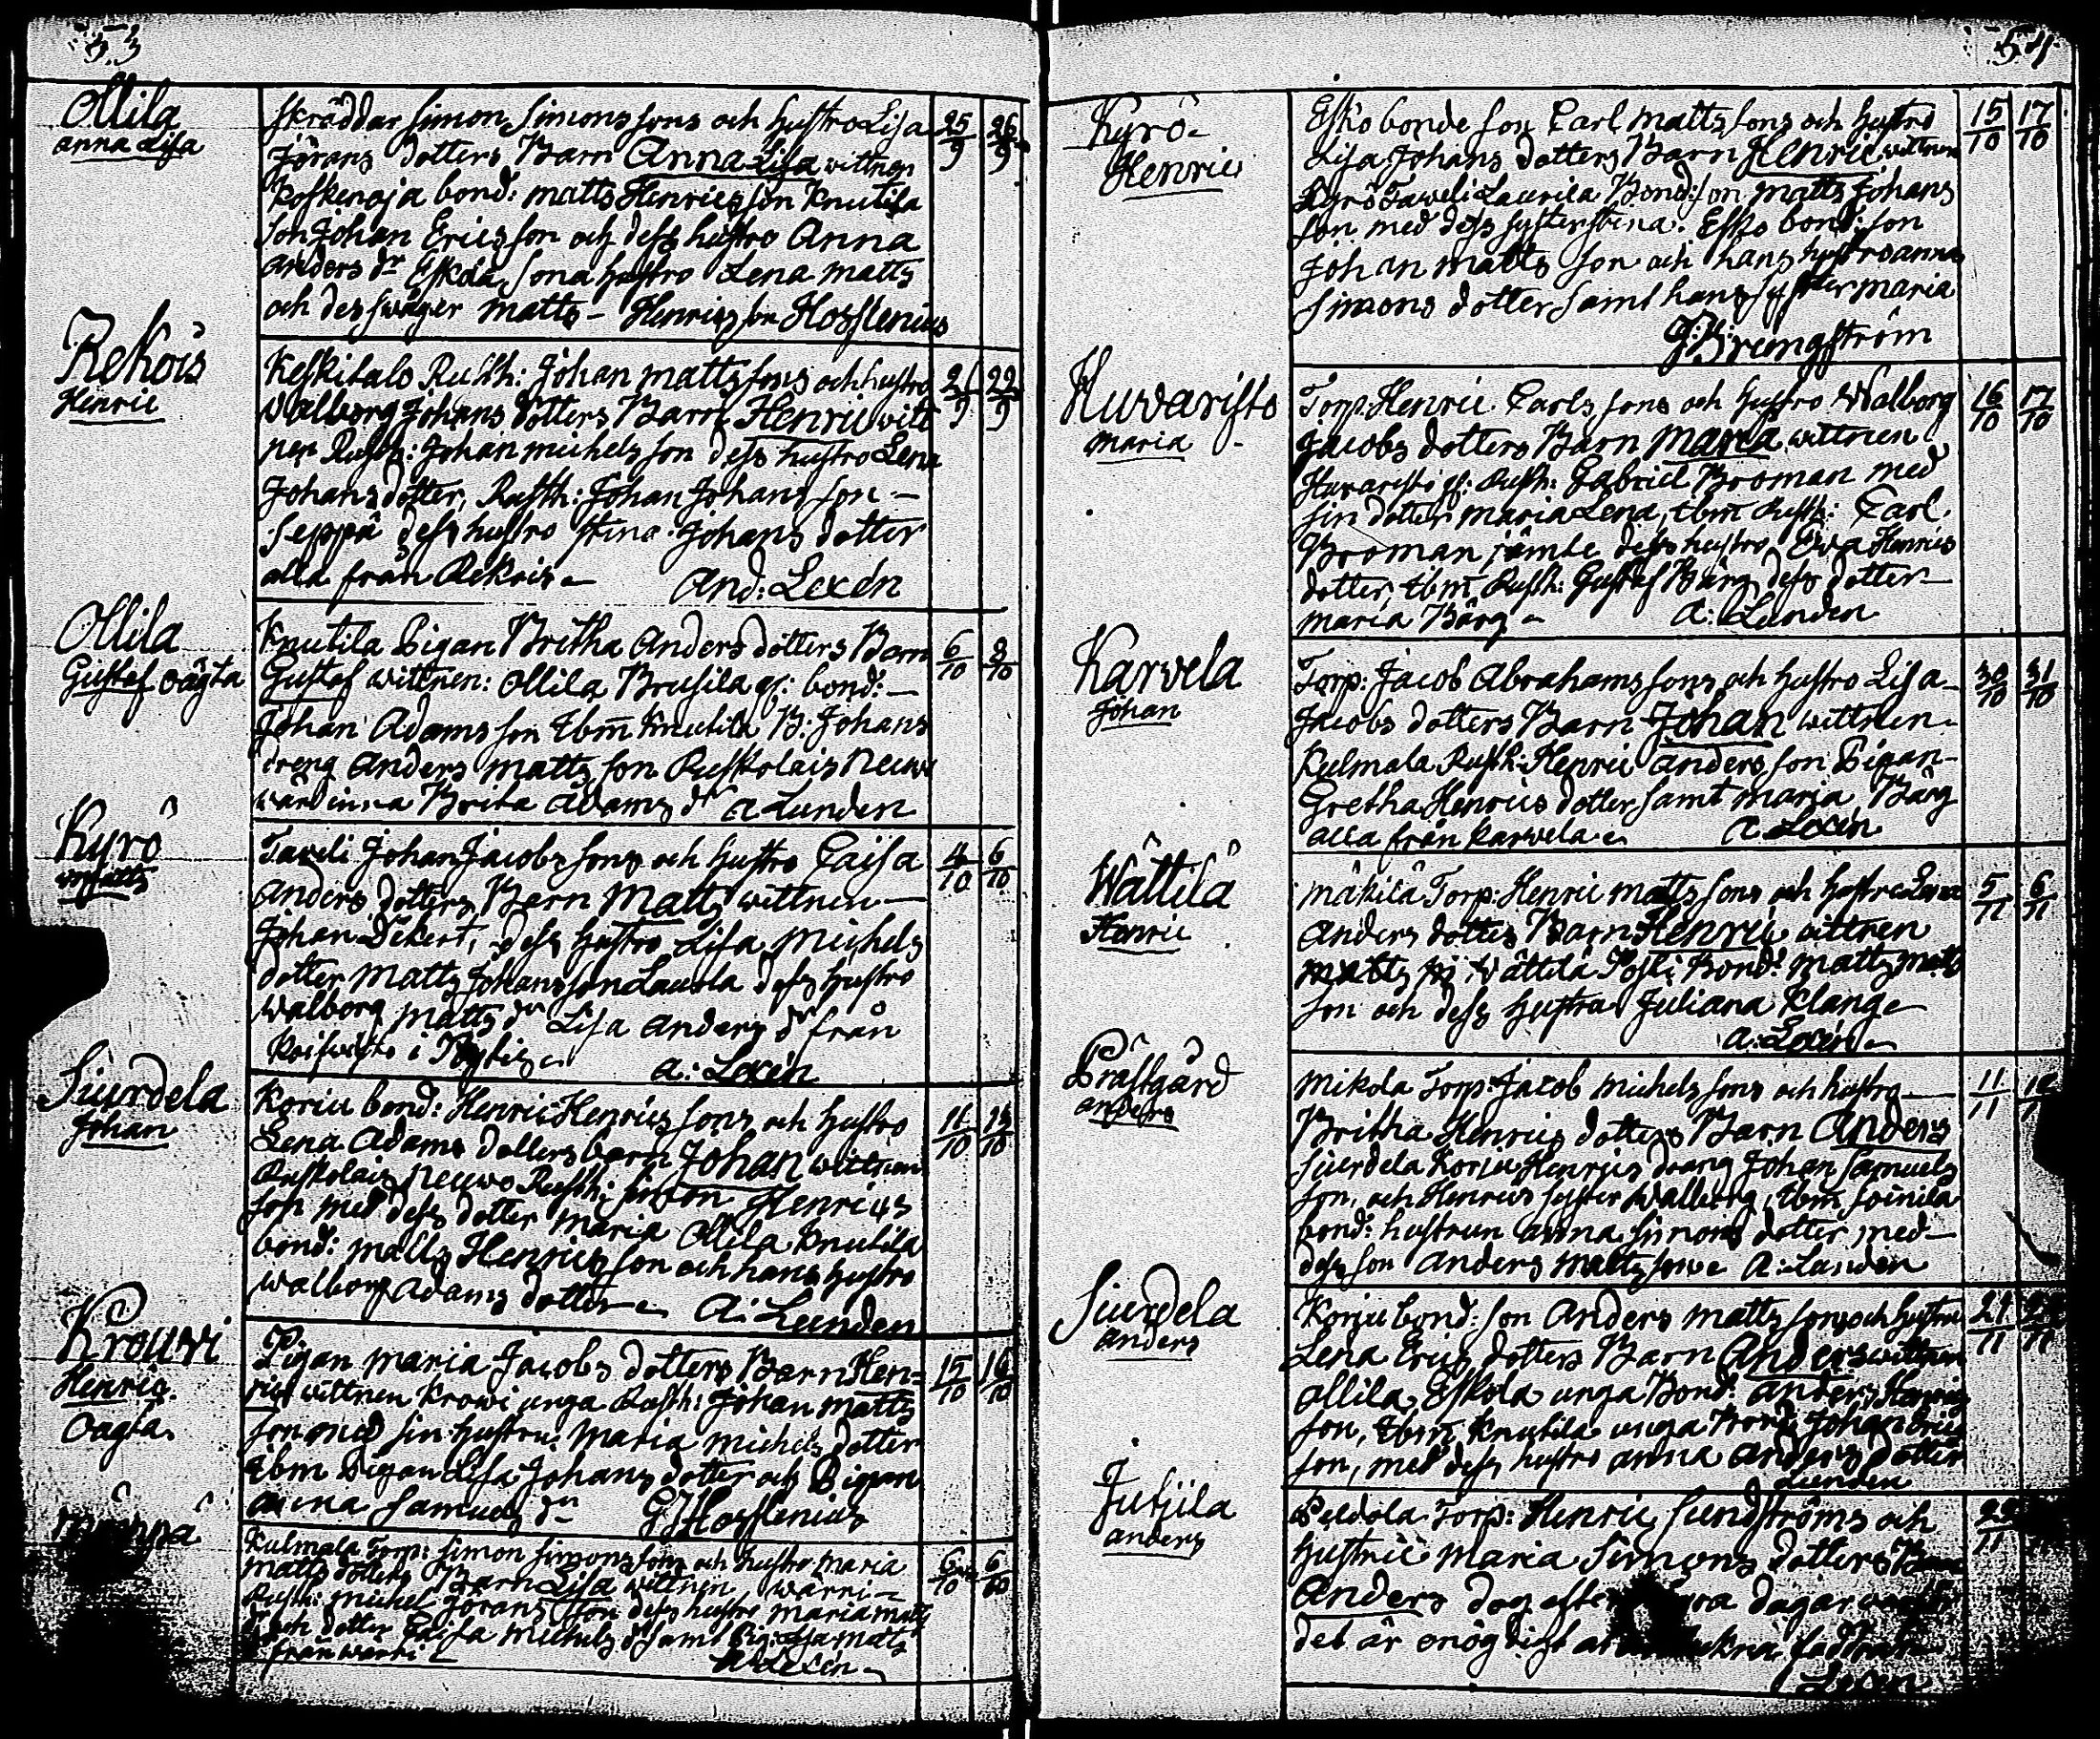 53
Ollila
Anna Lisa
Skräddar Simon Simonssons och hustro Lisa 25/9 26/9
Jörans dotters Barn Anna Lisa wittnen
Koskenoja bond: Matts Henricsson Knutila
son Johan Ericsson och dess hustro Anna
Anders dr Eskola sona hustro Lena Matts
och des swåger Matts - Henricsson Hosslenius
Rekois
Henric
Keskitalo Rusth: Johan Mattssons och hustro 21/9 22/9
Walborg Johans dotters Barn Henric witt
nen Rusth: Johan Michelsson dess hustro Lena
Johansdotter, Rusth: Johan Johansson -
Seppä dess hustro Stina Johans dotter
alla från Rekois - And: Lexén
Ollila
Gustaf oägta
Knutila Pigan Britha Anders dotters Barn 6/10 8/10
Gustaf wittnen: Ollila Brusila gl: bond: -
Johan Adamsson Ibm Knutila B: Johans
dreng Anders Mattsson Ruskolais Neuwo
wärdinna Brita Adams dr A Lunden
Kyrö
Matts
Taveli Johan Jacobssons och hustro Caisa 4/10 6/10
Anders dotters Barn Matts wittnen -
Johan Dekert, dess hustro Lisa Michels
dotter Matts Johansson Laurola dess hustro
Walborg Matts dr Lisa Anders dr från
Koiwisto i Pyhtis - A: Lexén
Siurdela
Johan
Korju bond: Henric Henricssons och hustro 11/10 13/10
Lena Adams dotters barn Johan wittnen
Ruskolais Neuwo Rusth: Simon Henrics
son med dess dotter Maria Ollila Knutila
bond: Matts Henricsson och hans hustro
Walborg Adams dotter - A: Lunden
Krouwi
Henric
Oägta
Pigan Maria Jacobs dotters Barn Hen= 15/10 16/10
ric wittnen Krowi unga Rusth: Johan Matts
son med sin hustru Maria Michels dotter
Ibm Pigan Lisa Johans dotter och Pigan
Anna Samuels dr G Hosslenius
Kulmala Torp: Simon Simonssons och hustro Maria 6/10 6/10
Matts dotters Barn Lisa wittnen, Warri -
Rusth: Michel Göransson dess hustro Maria Matts
dr och dotter Caisa Michels dr samt Pig: Lisa Matts
dr från Warri - A: Lexén -
54
Kyrö
Henric
Esko bonde son Carl Mattssons och hustro 15/10 17/10
Lisa Johans dotters Barn Henric wittnen
Kyrö Taweli Laurila Bond: son Matts Johans
son med dess syster Stina. Esko bond: son
Johan Matts son och hans hustro Anna
Simons dotter samt hans syster Maria
G: Brengström
Huwaristo
Maria
Torp: Henric Carlssons och hustro Walborg 16/10 17/10
Jacobs dotters Barn Maria wittnen
Huvaristo gl: Rusth: Gabriel Broman med
sin dotter Maria Lena, Ibm Rusth: Carl
Broman jämte dess hustro Ewa Henrics
dotter, Ibm Rusth: Gustaf Bärg dess dotter
Maria Bärg - A: Lunden
Karvela
Johan
Torp: Jacob Abrahamssons och hustro Lisa 30/10 31/10
Jacobs dotters Barn Johan wittnen
Kulmala Rusth: Henric Andersson Pigan -
Gretha Henrics dotter samt Maria Bärg
alla från Karvela - A. Lexén
Wättilä
Henric
Mäkilä Torp: Henric Mattssons och hustro Lena 5/11 6/11
Anders dotters Barn Henric wittnen
Wättilä Posti Bond: Matts Matts
son och dess hustro Juliana Klang -
A: Lexén -
Prästgård
Anders
Mikola Torp: Jacob Michelssons och hustro 11/11
Britha Henrics dotters Barn Anders
Siurdela Korju Henrics dräng Johan Samuels
son, och Henrics syster Walborg, Ibm Soinila
bond: hustrun Anna Simons dotter med
dess son Anders Mattsson - A: Lunden
Siurdela
Anders
Korju bond: son Anders Mattssons och hustro 21/11
Lena Erics dotters Barn Anders wittnen
Ollila Eskola unga Bond: Anders Henrics
son, Ibm Knutila unga Bond: Johan Erics
son, med dess hustro Anna Anders dotter
Lunden
Jutjila
Anders
Peldola Torp: Henric Sundströms och
hustru Maria Simons dotters Barn
Anders dog efter dagar
det är onögdigt
Lexén